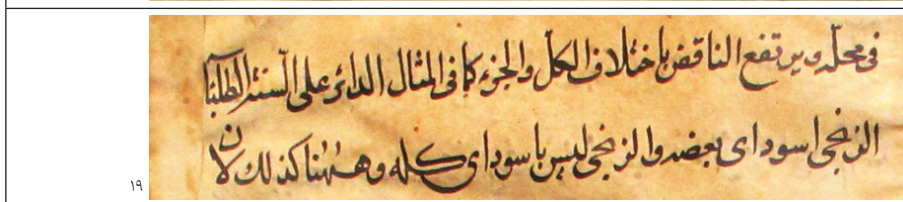 فى محله ويرتفع التناقض باختلاف الكل والجزء كما فى المثال الدائر على السنة الطلبة
الزنجى اسود اى بعضه والزنجى ليس باسود اى كله وههنا كذلك لان
١٩